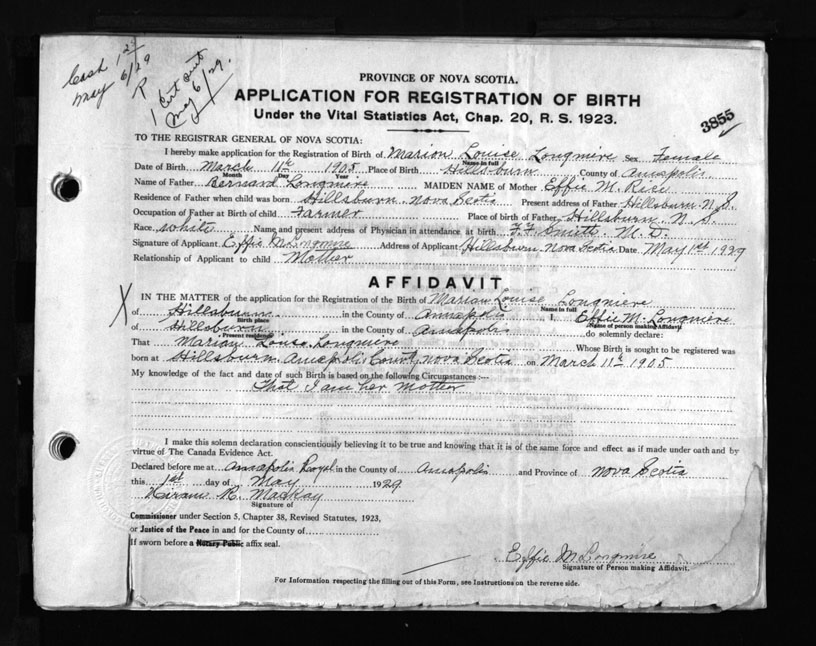 Cash 1.25
May 6/29
1 Cert sent
May 6/29.
PROVINCE OF NOVA SCOTIA.
APPLICATION FOR REGISTRATION OF BIRTH
Under the Vital Statistics Act, Chap. 20, R. S. 1923.
3855
TO THE REGISTRAR GENERAL OF NOVA SCOTIA:
I hereby make application for the Registration of Birth of Marion Louise Longmire Sex Female
Name in full
Date of Birth March 11th 1905 Place of Birth Hillsburn County of Annapolis
Month Day Year
Name of Father Bernard Longmire MAIDEN NAME of Mother Effie M. Rice
Residence of Father when child was born Hillsburn Nova Scotia Present address of Father Hillsburn N.S.
Occupation of Father at Birth of child Farmer Place of birth of Father Hillsburn N. S.
Race white Name and present address of Physician in attendance at birth F. F. Smith M. D.
Signature of Applicant Effie M Longmire Address of Applicant Hillsburn Nova Scotia Date May 1st 1929
Relationship of Applicant to child Mother
AFFIDAVIT
X IN THE MATTER of the application for the Registration of the Birth of Marion Louise Longmire
Name in full
of Hillsburn in the County of Annapolis I, Effie M. Longmire
Birth place Name of person making Affidavit
of Hillsburn in the County of Annapolis do solemnly declare:
Present residence
That Marion Louise Longmire Whose Birth is sought to be registered was
born at Hillsburn Annapolis County Nova Scotia on March 11th 1905
My knowledge of the fact and date of such Birth is based on the following Circumstances:—
That I am her Mother
I make this solemn declaration conscientiously believing it to be true and knowing that it is of the same force and effect as if made under oath and by
virtue of The Canada Evidence Act.
Declared before me at Annapolis Royal in the County of Annapolis and Province of Nova Scotia
this 1st day of May 1929
Hiram R. MacKay
Signature of
Commissioner under Section 5, Chapter 38, Revised Statutes, 1923,
or Justice of the Peace in and for the County of
If sworn before a Notary Public affix seal.
Effie M Longmire
Signature of Person making Affidavit.
For Information respecting the filling out of this Form, see Instructions on the reverse side.